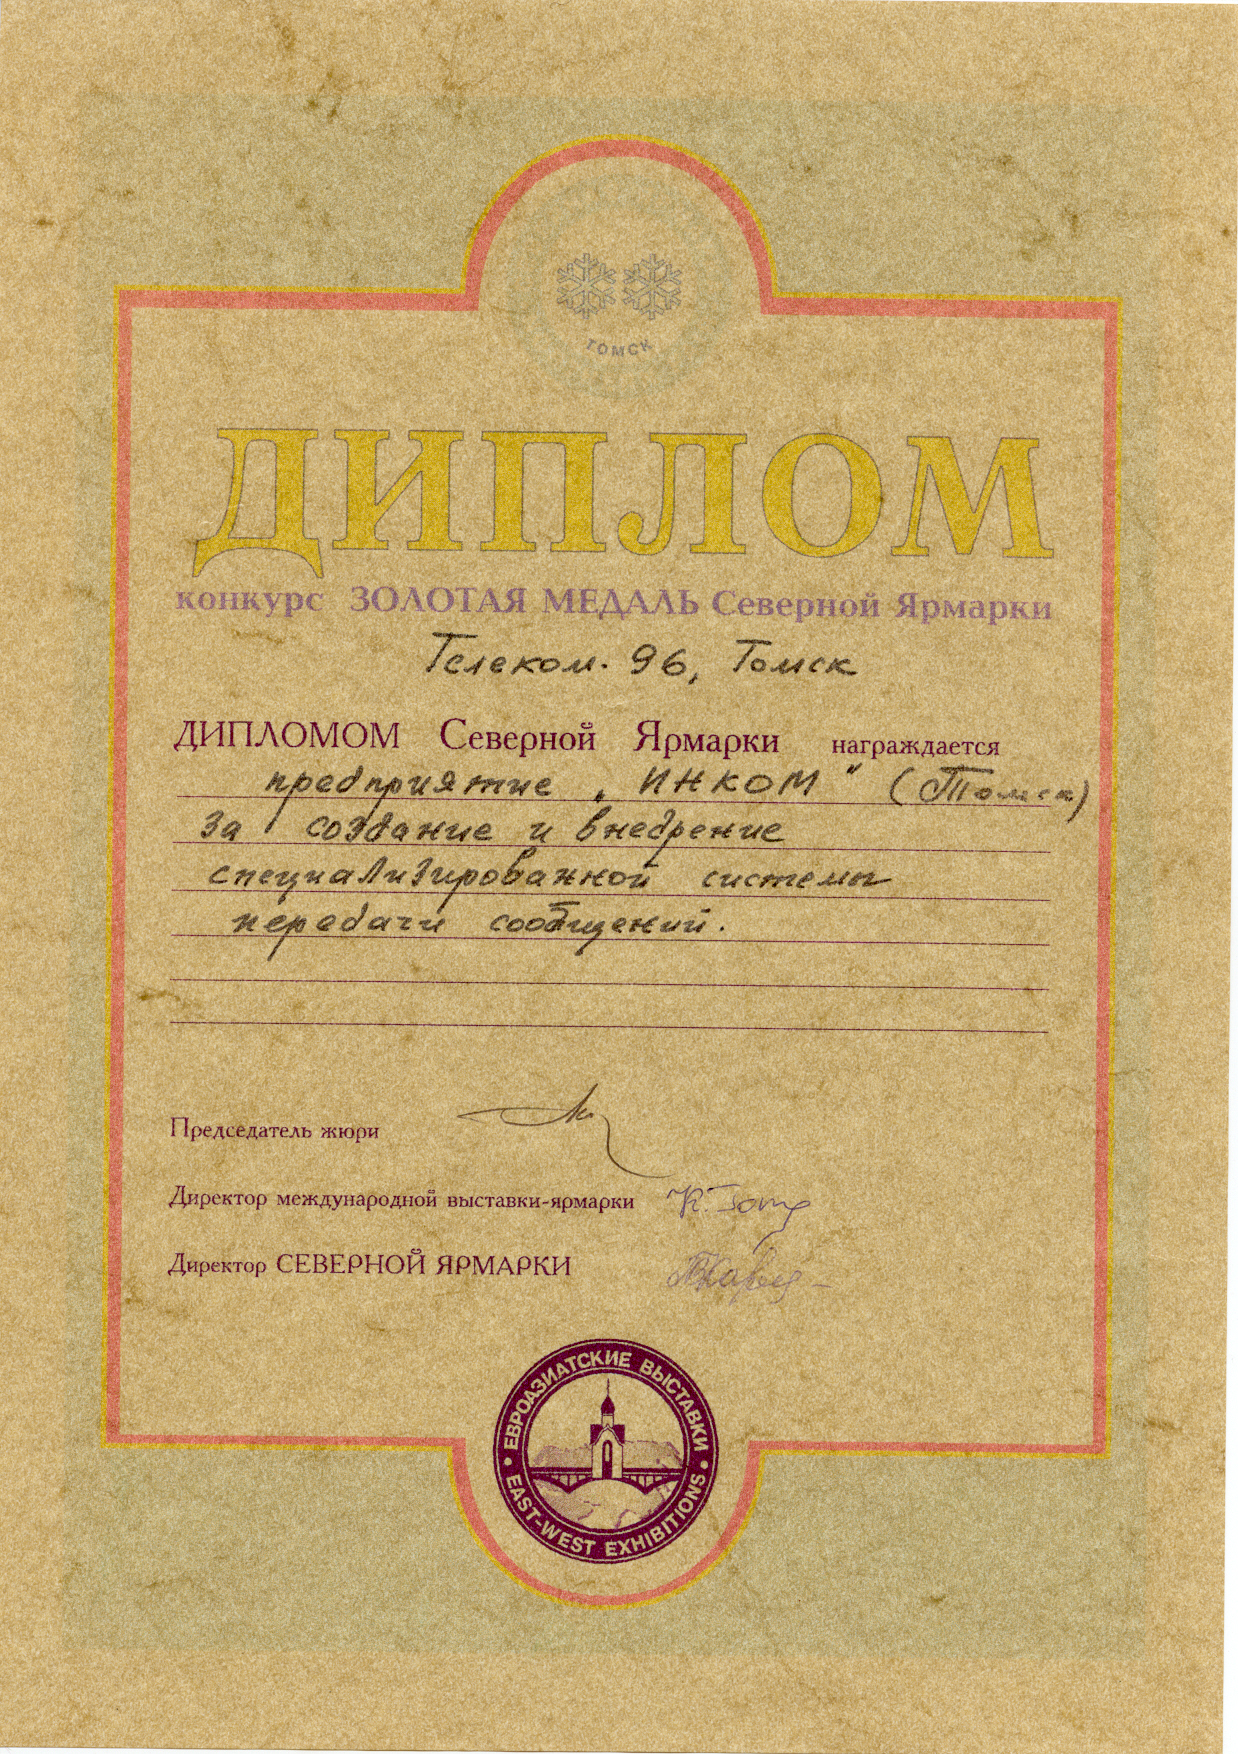 ТОМСК
ДИПЛОМ
конкурс ЗОЛОТАЯ МЕДАЛЬ Северной Ярмарки
Телеком. 96, Томск
ДИПЛОМОМ Северной Ярмарки награждается
предприятие „ИНКОМ" (Томск)
за создание и внедрение
специализированной системы
передачи сообщений.
Председатель жюри
Директор международной выставки-ярмарки
Директор СЕВЕРНОЙ ЯРМАРКИ
• ЕВРОАЗИАТСКИЕ ВЫСТАВКИ •
EAST-WEST EXHIBITIONS